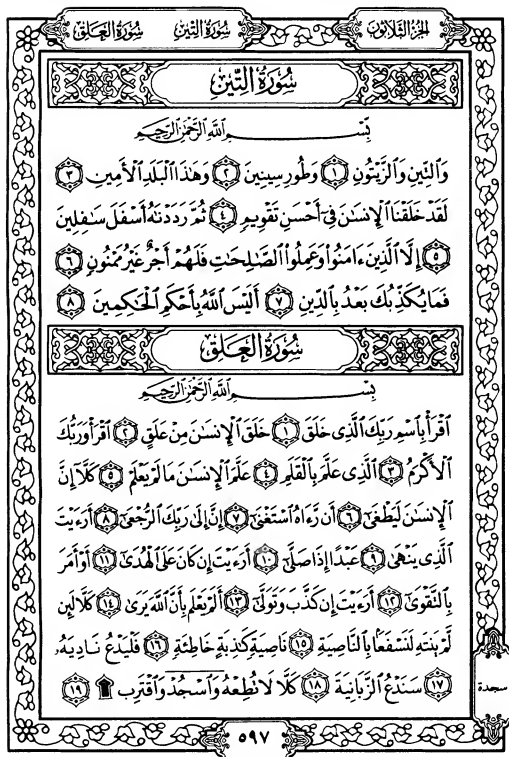 سُورَةُ العَلَقِ سُورَةُ التِّينِ الجُزْءُ الثَّلَاثُونَ
سُورَةُ التِّينِ
بِسْمِ اللَّهِ الرَّحْمَٰنِ الرَّحِيمِ
وَالتِّينِ وَالزَّيْتُونِ ١ وَطُورِ سِينِينَ ٢ وَهَٰذَا الْبَلَدِ الْأَمِينِ ٣
لَقَدْ خَلَقْنَا الْإِنسَٰنَ فِي أَحْسَنِ تَقْوِيمٍ ٤ ثُمَّ رَدَدْنَٰهُ أَسْفَلَ سَٰفِلِينَ
٥ إِلَّا الَّذِينَ ءَامَنُوا وَعَمِلُوا الصَّٰلِحَٰتِ فَلَهُمْ أَجْرٌ غَيْرُ مَمْنُونٍ ٦
فَمَا يُكَذِّبُكَ بَعْدُ بِالدِّينِ ٧ أَلَيْسَ اللَّهُ بِأَحْكَمِ الْحَٰكِمِينَ ٨
سُورَةُ العَلَقِ
بِسْمِ اللَّهِ الرَّحْمَٰنِ الرَّحِيمِ
اقْرَأْ بِاسْمِ رَبِّكَ الَّذِي خَلَقَ ١ خَلَقَ الْإِنسَٰنَ مِنْ عَلَقٍ ٢ اقْرَأْ وَرَبُّكَ
الْأَكْرَمُ ٣ الَّذِي عَلَّمَ بِالْقَلَمِ ٤ عَلَّمَ الْإِنسَٰنَ مَا لَمْ يَعْلَمْ ٥ كَلَّا إِنَّ
الْإِنسَٰنَ لَيَطْغَىٰ ٦ أَن رَّءَاهُ اسْتَغْنَىٰ ٧ إِنَّ إِلَىٰ رَبِّكَ الرُّجْعَىٰ ٨ أَرَءَيْتَ
الَّذِي يَنْهَىٰ ٩ عَبْدًا إِذَا صَلَّىٰ ١٠ أَرَءَيْتَ إِن كَانَ عَلَى الْهُدَىٰ ١١ أَوْ أَمَرَ
بِالتَّقْوَىٰ ١٢ أَرَءَيْتَ إِن كَذَّبَ وَتَوَلَّىٰ ١٣ أَلَمْ يَعْلَم بِأَنَّ اللَّهَ يَرَىٰ ١٤ كَلَّا لَئِن
لَّمْ يَنتَهِ لَنَسْفَعًا بِالنَّاصِيَةِ ١٥ نَاصِيَةٍ كَٰذِبَةٍ خَاطِئَةٍ ١٦ فَلْيَدْعُ نَادِيَهُۥ
١٧ سَنَدْعُ الزَّبَانِيَةَ ١٨ كَلَّا لَا تُطِعْهُ وَاسْجُدْ وَاقْتَرِب ۩ ١٩
سجدة
٥٩٧